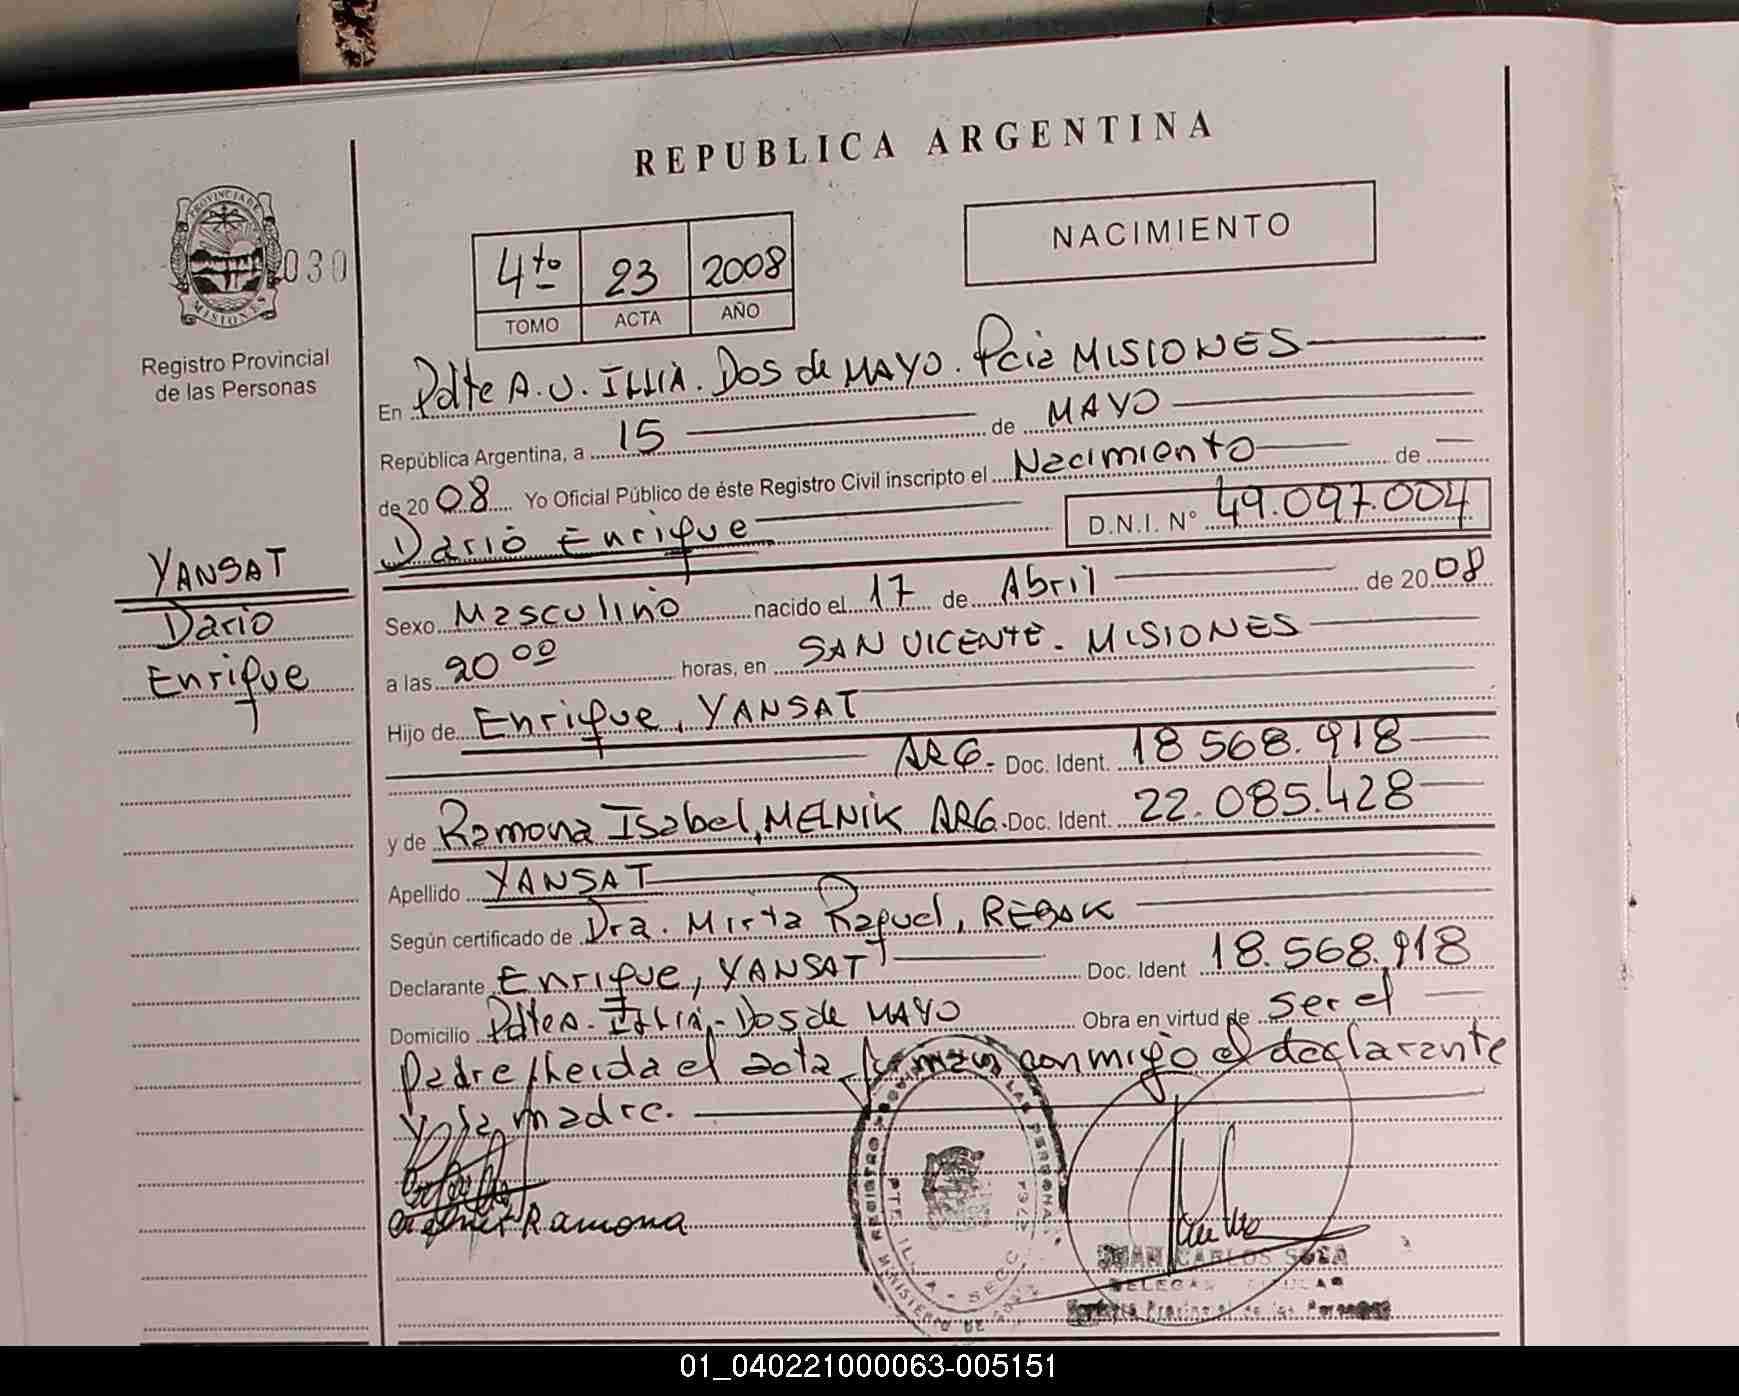 REPUBLICA ARGENTINA
PROVINCIA DE MISIONES
030
Registro Provincial
de las Personas
4to 23 2008
TOMO ACTA AÑO
NACIMIENTO
En Pdte A.U. ILLIA. Dos de MAYO. Pcia MISIONES
República Argentina, a 15 de MAYO
de 2008 Yo Oficial Público de éste Registro Civil inscripto el Nacimiento de
Dario Enrique D.N.I. N° 49.097.004
YANSAT
Dario
Enrique
Sexo Masculino nacido el 17 de Abril de 2008
a las 20 00 horas, en SAN VICENTE. MISIONES
Hijo de Enrique, YANSAT
ARG. Doc. Ident. 18 568.918
y de Ramona Isabel, MELNIK ARG. Doc. Ident. 22.085.428
Apellido YANSAT
Según certificado de Dra. Mirta Raquel, REBAK
Declarante Enrique, YANSAT Doc. Ident 18.568.918
Domicilio Pdte A. Illia,-Dos de MAYO Obra en virtud de ser el
padre/Leida el acta firman conmigo el declarante
y la madre.
Ramona
JUAN CARLOS SOSA
Registro Provincial de las Personas
01_040221000063-005151